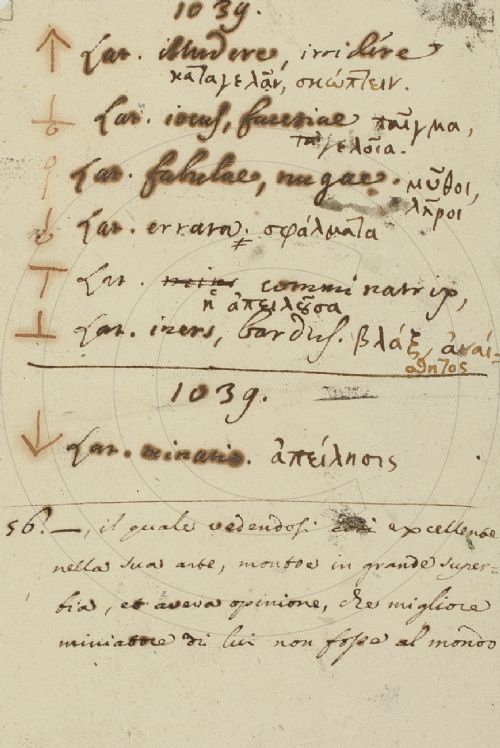 1039.
Lat. illudere, irridere
καταγελᾶν, σκώπτειν.
Lat. iocus, facetiae παῖγμα,
τα γελοῖα.
Lat. fabulae, nugae. μῦθοι,
λῆροι
Lat. errata. σφάλματα
Lat. comminatrix,
ἡ ἀπειλοῦσα
Lat. iners, bardus. βλάξ, ἀναί-
σθητος
1039.
Lat. minatio. ἀπείλησις
56. —, il quale vedendosi così excellente
nella sua arte, montoe in grande super-
bia, et aveva opinione, che migliore
miniatore di lui non fosse al mondo